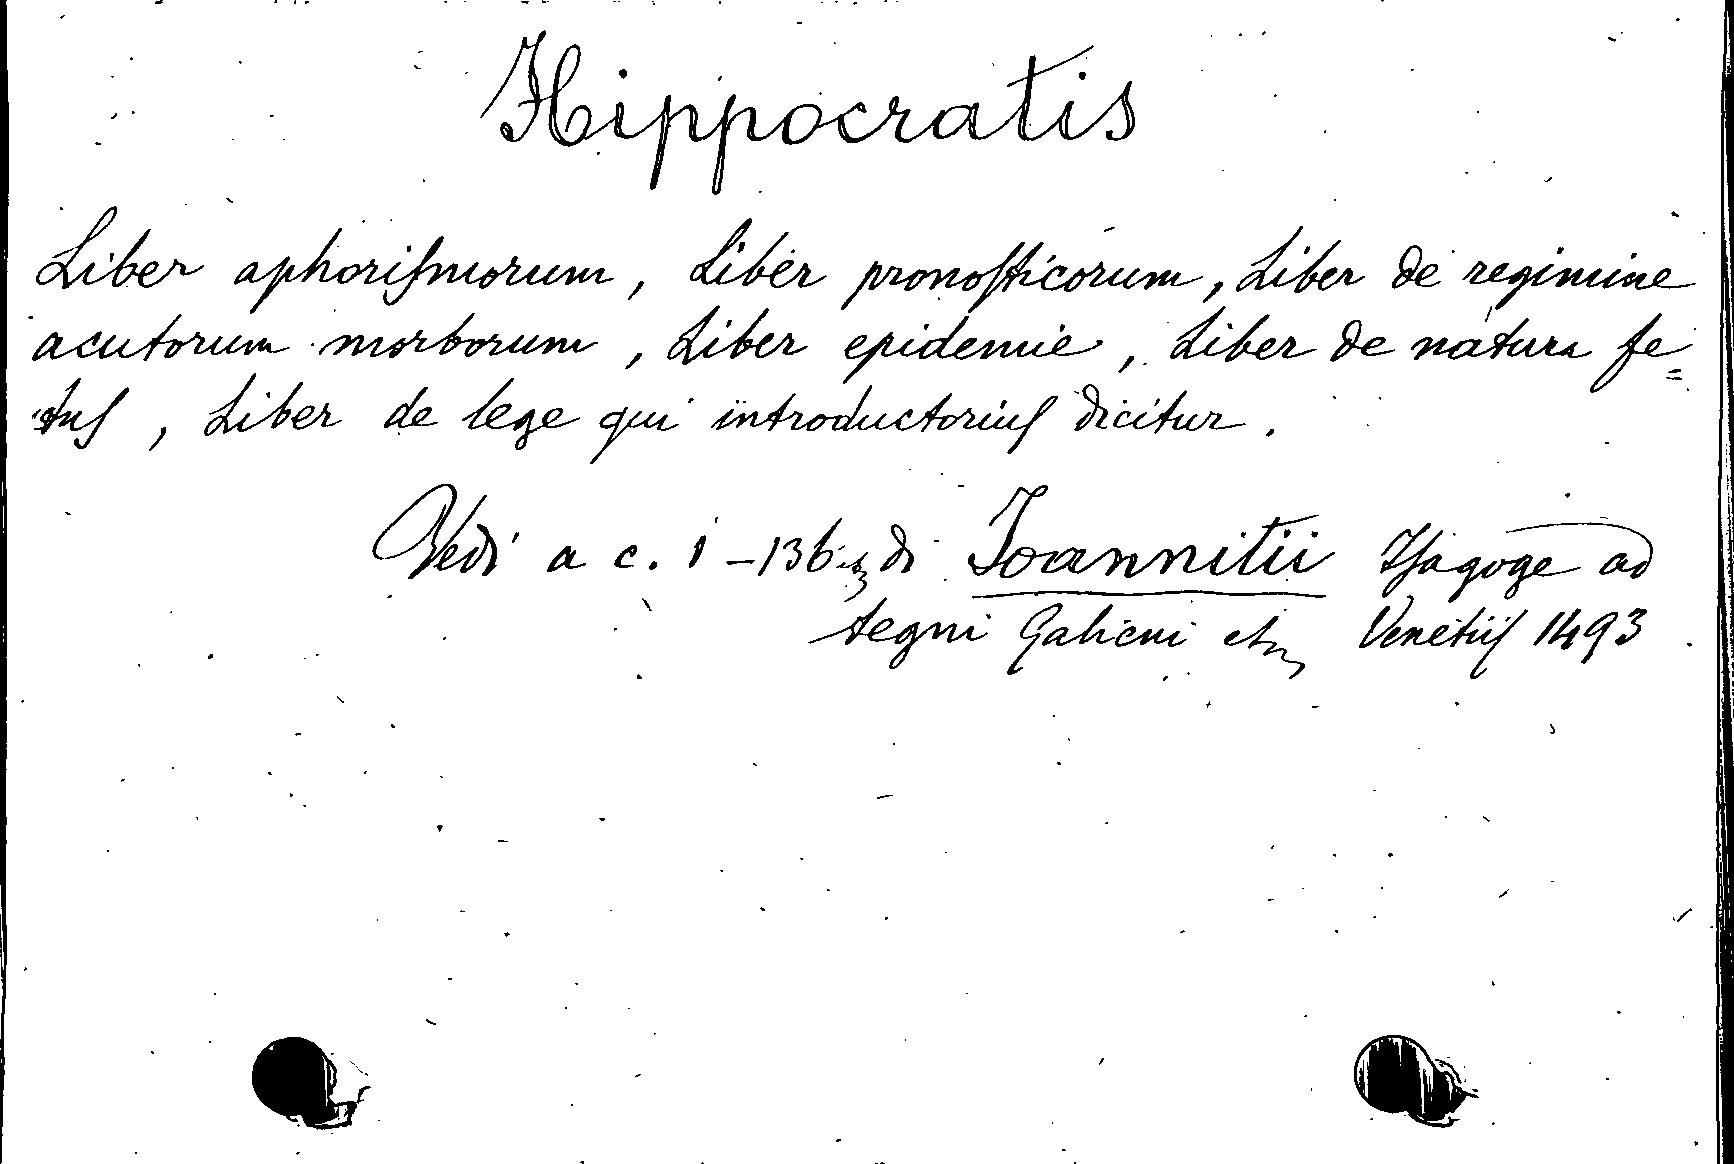 Hippocratis
Liber aphoriſmorum, Liber pronoſticorum, Liber de regimine
acutorum morborum, Liber epidemie, Liber de natura fe=
tuſ, Liber de lege qui introductoriuſ dicitur.
Vedi a c. 1-136 di Joannitii Iſagoge ad
tegni Galieni etc Venetiiſ 1493